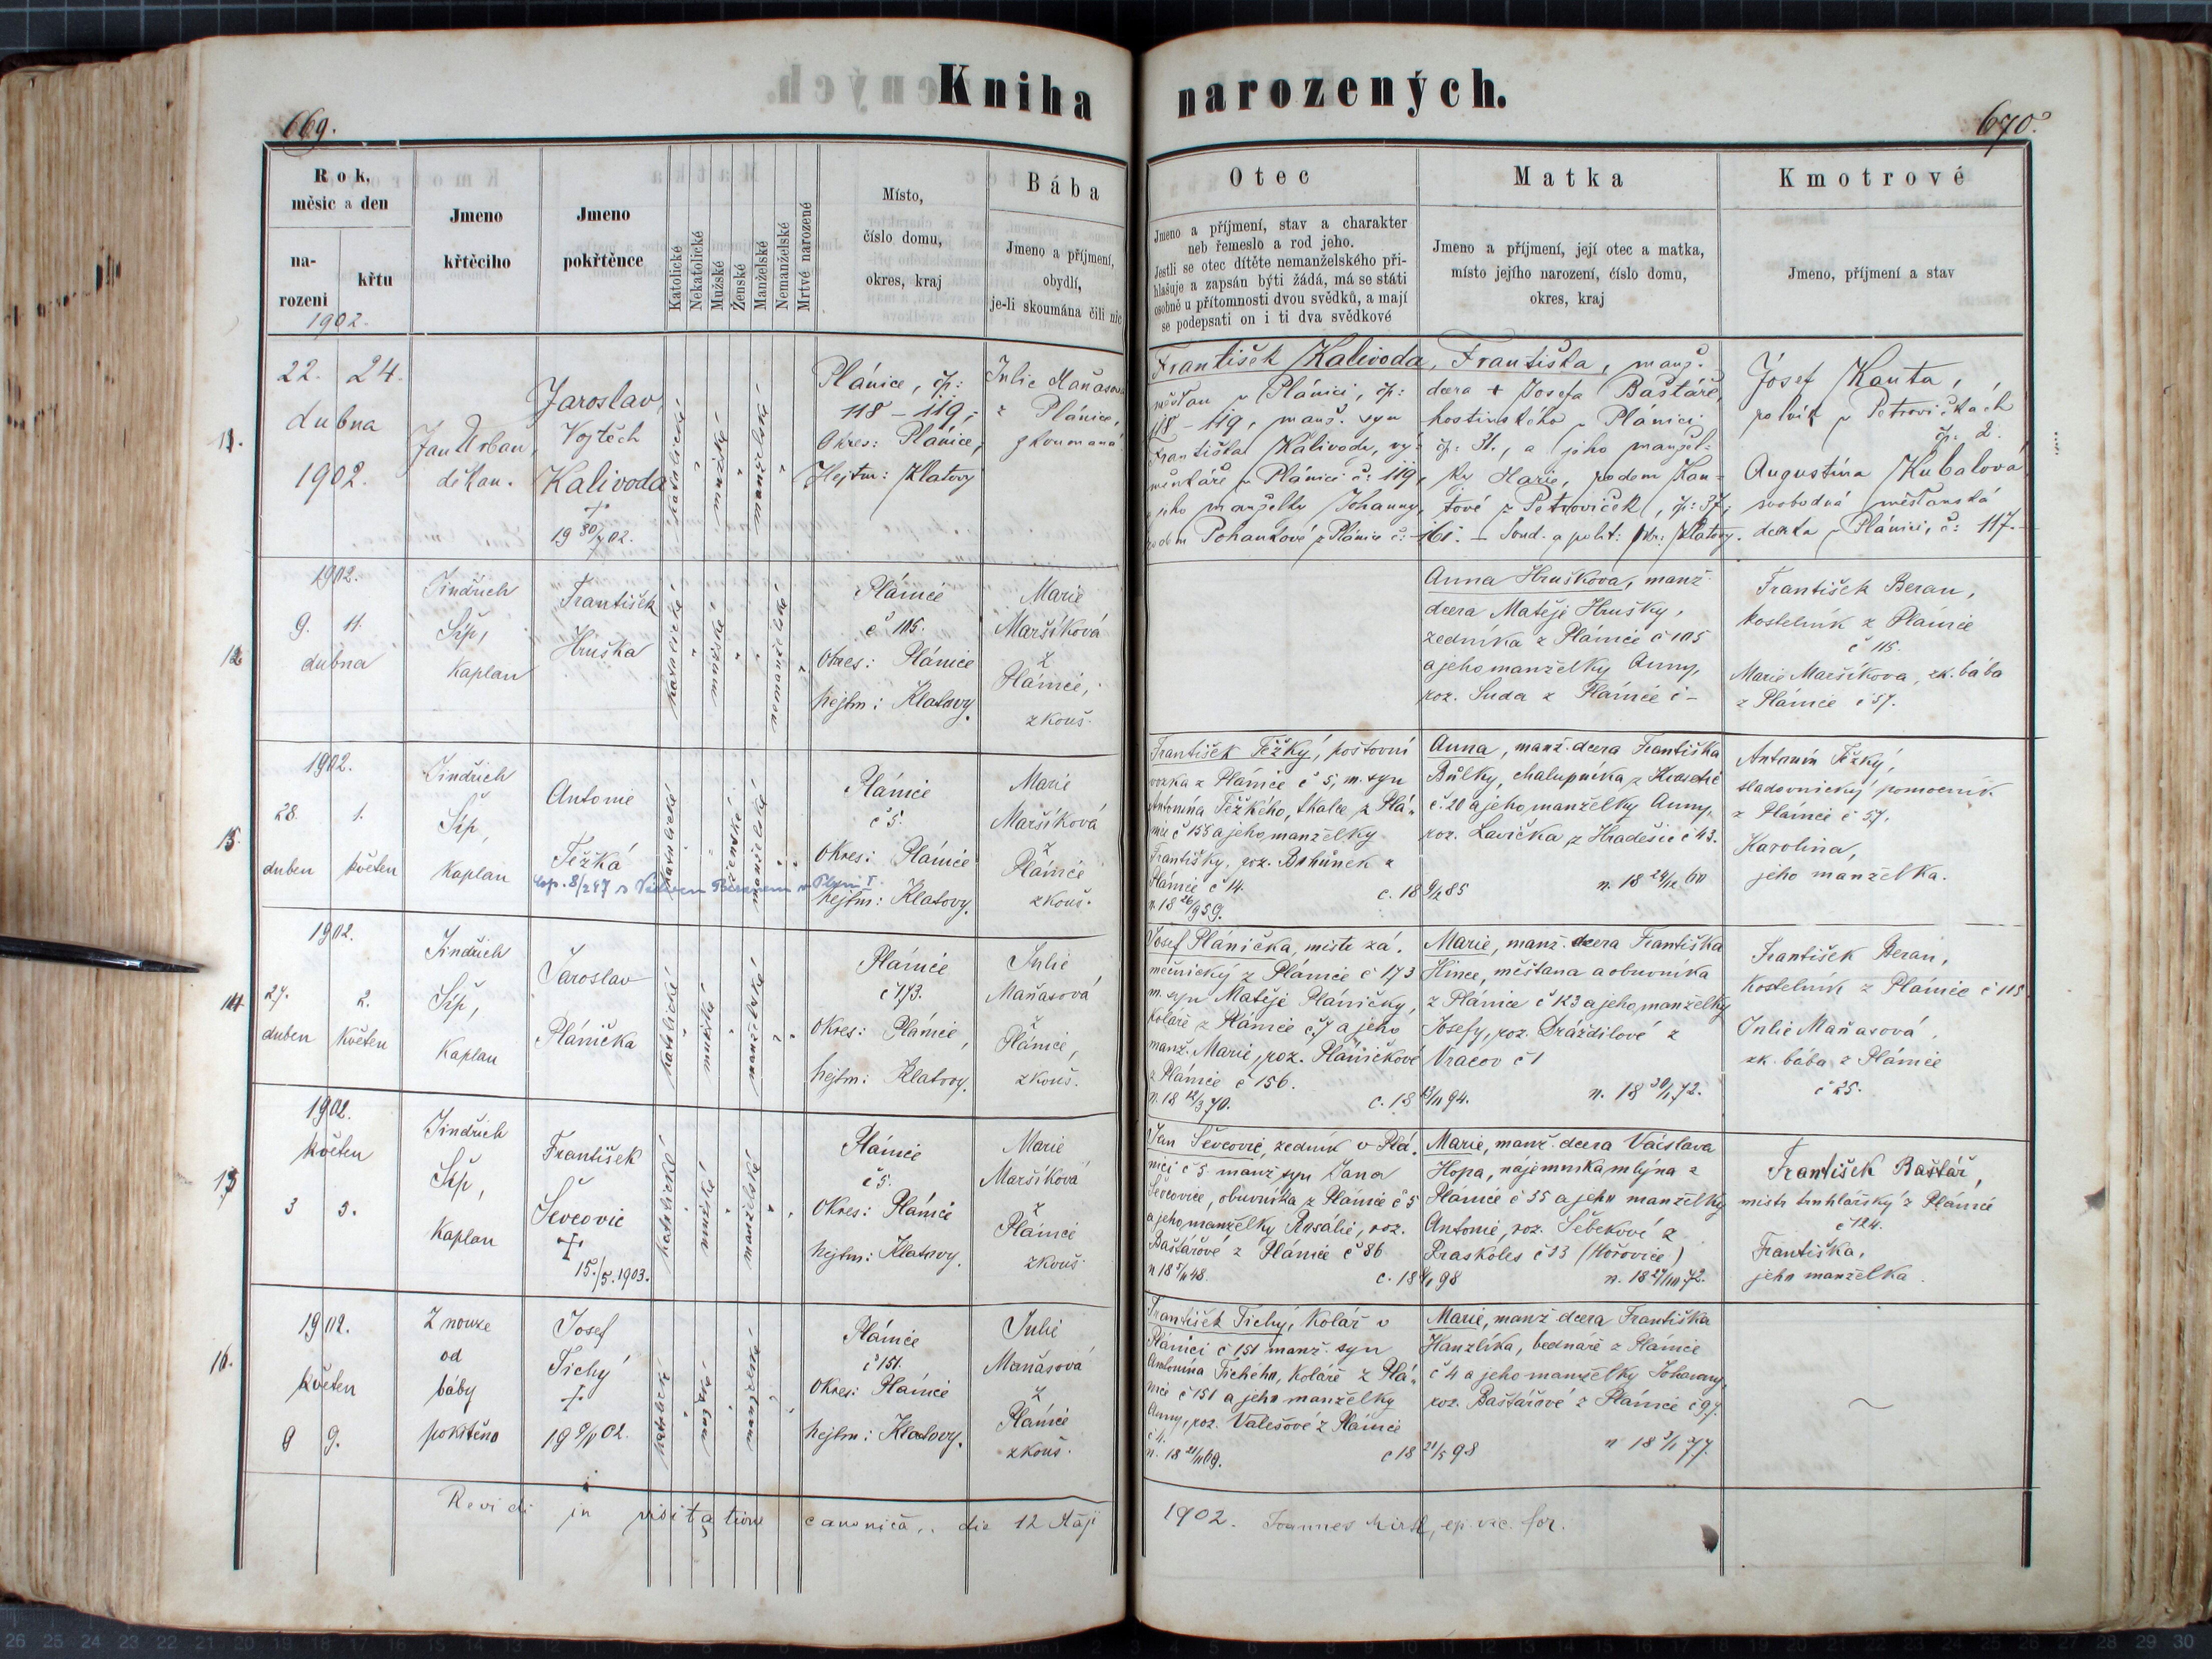 Kniha narozených.
669.
670.
Rok,
měsíc a den
na-
rozeni
křtu
1902.
Jmeno
křtěcího
Jmeno
pokřtěnce
Katolické
Nekatolické
Mužské
Ženské
Manželské
Nemanželské
Mrtvé narozené
Místo,
číslo domu,
okres, kraj
Bába
Jmeno a příjmení,
obydlí,
je-li skoumána čili nic
Otec
Jmeno a příjmení, stav a charakter
neb řemeslo a rod jeho.
Jestli se otec dítěte nemanželského při-
hlašuje a zapsán býti žádá, má se státi
osobně u přítomnosti dvou svědků, a mají
se podepsati on i ti dva svědkové
Matka
Jmeno a příjmení, její otec a matka,
místo jejího narození, číslo domu,
okres, kraj
Kmotrové
Jmeno, příjmení a stav
11.
22. 24.
dubna
1902.
Jan Urban,
děkan.
Jaroslav,
Vojtěch
Kalivoda
+
19 30/7 02.
katolické
mužské
manželské
Plánice, čp:
118 – 119,
Okres: Plánice,
Hejtm: Klatovy
Julie Maňasová
z Plánice,
zkoumaná
František Kalivoda,
měšťan v Plánici, čp:
118 – 119, manž. syn
Františka Kalivody, vý-
měnkáře v Plánici č: 119,
a jeho manželky Johanny,
rodem Pohankové z Plánice č: 161.
Františka, manž.
dcera + Josefa Baštáře,
hostinského v Plánici
čp: 31., a jeho manžel-
ky Marie, rodem Kan-
tové z Petroviček, čp: 37,
Soud. a polit: okr: Klatovy.
Josef Kanta,
rolník v Petrovičkách
čp. 2.
Augustina Kubalová
svobodná měšťanská
dcerka v Plánici, č: 117.
12
1902.
9. 11.
dubna
Jindřich
Síp,
Kaplan
František
Hruška
katolické
mužské
nemanželské
Plánice
č 105.
Okres: Plánice
hejtm: Klatovy.
Marie
Maršíková
z
Plánice,
zkouš.
Anna Hrušková, manž.
dcera Matěje Hrušky,
zedníka z Plánice č 105
a jeho manželky Anny,
roz. Suda z Plánice č –
František Beran,
kostelník z Plánice
č 115.
Marie Maršíkova, zk. bába
z Plánice č 57.
13.
1902.
28. 1.
duben květen
Jindřich
Síp,
Kaplan
Antonie
Těžká
katolické
ženské
manželské
Plánice
č 5.
Okres: Plánice
hejtm: Klatovy.
Marie
Maršíková
z
Plánice
zkouš.
František Těžký, poštovní
vozka z Plánice č 5, m. syn
Antonína Těžkého, tkalce z Plá-
nice č 155 a jeho manželky
Františky, roz. Bohůnek z
Plánice č 14.
n. 18 26/9 59.
c. 18 9/2 85
Anna, manž. dcera Františka
Bůlky, chalupníka z Kvaschic
č. 20 a jeho manželky Anny,
roz. Lavička z Hradešic č 43.
n. 18 24/12 60
Antonín Těžký,
sladovnický pomocník
z Plánice č 57,
Karolina,
jeho manželka.
14
1902.
27. 2.
duben květen
Jindřich
Síp,
Kaplan
Jaroslav
Plánička
katolické
mužské
manželské
Plánice
č 173.
Okres: Plánice,
hejtm: Klatovy.
Julie
Maňasová
z
Plánice,
zkouš.
Josef Plánička, mistr zá-
mečnický z Plánice č 173
m. syn Matěje Pláničky,
koláře z Plánice č 7 a jeho
manž. Marie, roz. Pláničkové
z Plánice č 156.
n. 18 12/3 70.
c. 18 13/11 94.
Marie, manž. dcera Františka
Hince, měšťana a obuvníka
z Plánice č 123 a jeho manželky
Josefy, roz. Dráždilové z
Vracov č 1
n. 18 30/1 72.
František Beran,
Kostelník z Plánice č 115
Julie Maňasová,
zk. bába z Plánice
č 25.
15
1902.
květen
3 5.
Jindřich
Síp,
Kaplan
František
Ševcovic
+
15./5. 1903.
katolické
mužské
manželské
Plánice
č 5.
Okres: Plánice
hejtm: Klatovy.
Marie
Maršíková
z
Plánice
zkouš.
Jan Ševcovic, zedník v Plá-
nici č 5 manž. syn Jana
Ševcovice, obuvníka z Plánice č 5
a jeho manželky Rosálie, roz.
Baštářové z Plánice č 86
Marie, manž. dcera Václava
Hopa, nájemníka mlýna z
Plánice č 35 a jeho manželky
Antonie, roz. Šebekové z
Praskoles č 33 (Hořovice)
n. 18 27/10 72.
František Baštář,
mistr truhlářský z Plánice
č 124.
Františka,
jeho manželka.
16.
1902.
květen
9 9.
Z nouze
od
báby
pokřtěno
Josef
Tichý
+
katolické
mužské
manželské
Plánice
č 151.
Okres: Plánice
hejtm: Klatovy.
Julie
Maňasová
z
Plánice
zkouš.
František Tichý, kolář v
Plánici č 151 manž. syn
Antonína Tichého, koláře z Plá-
nice č 151 a jeho manželky
Anny, roz. Valešové z Plánice
č 4.
n. 18 21/11 69.
c 18 21/5 98
Marie, manž. dcera Františka
Hanzlíka, bednáře z Plánice
č 4 a jeho manželky Johanny,
roz. Baštářové z Plánice č 97.
n 18 3/1 77.
Revidi in visitatione canonica,. die 12 Maji 1902. Joannes